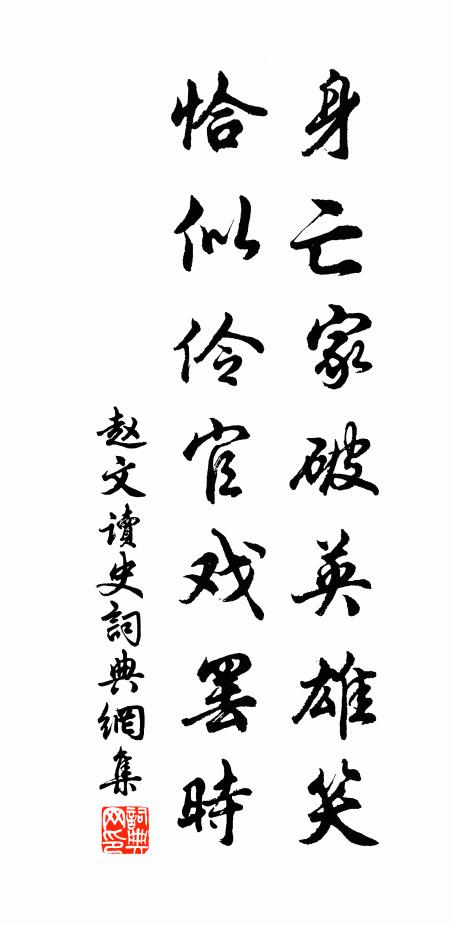 身亡家破英雄笑
恰似伶官戏罢時
赵文讀史詞典網集
詞典网印